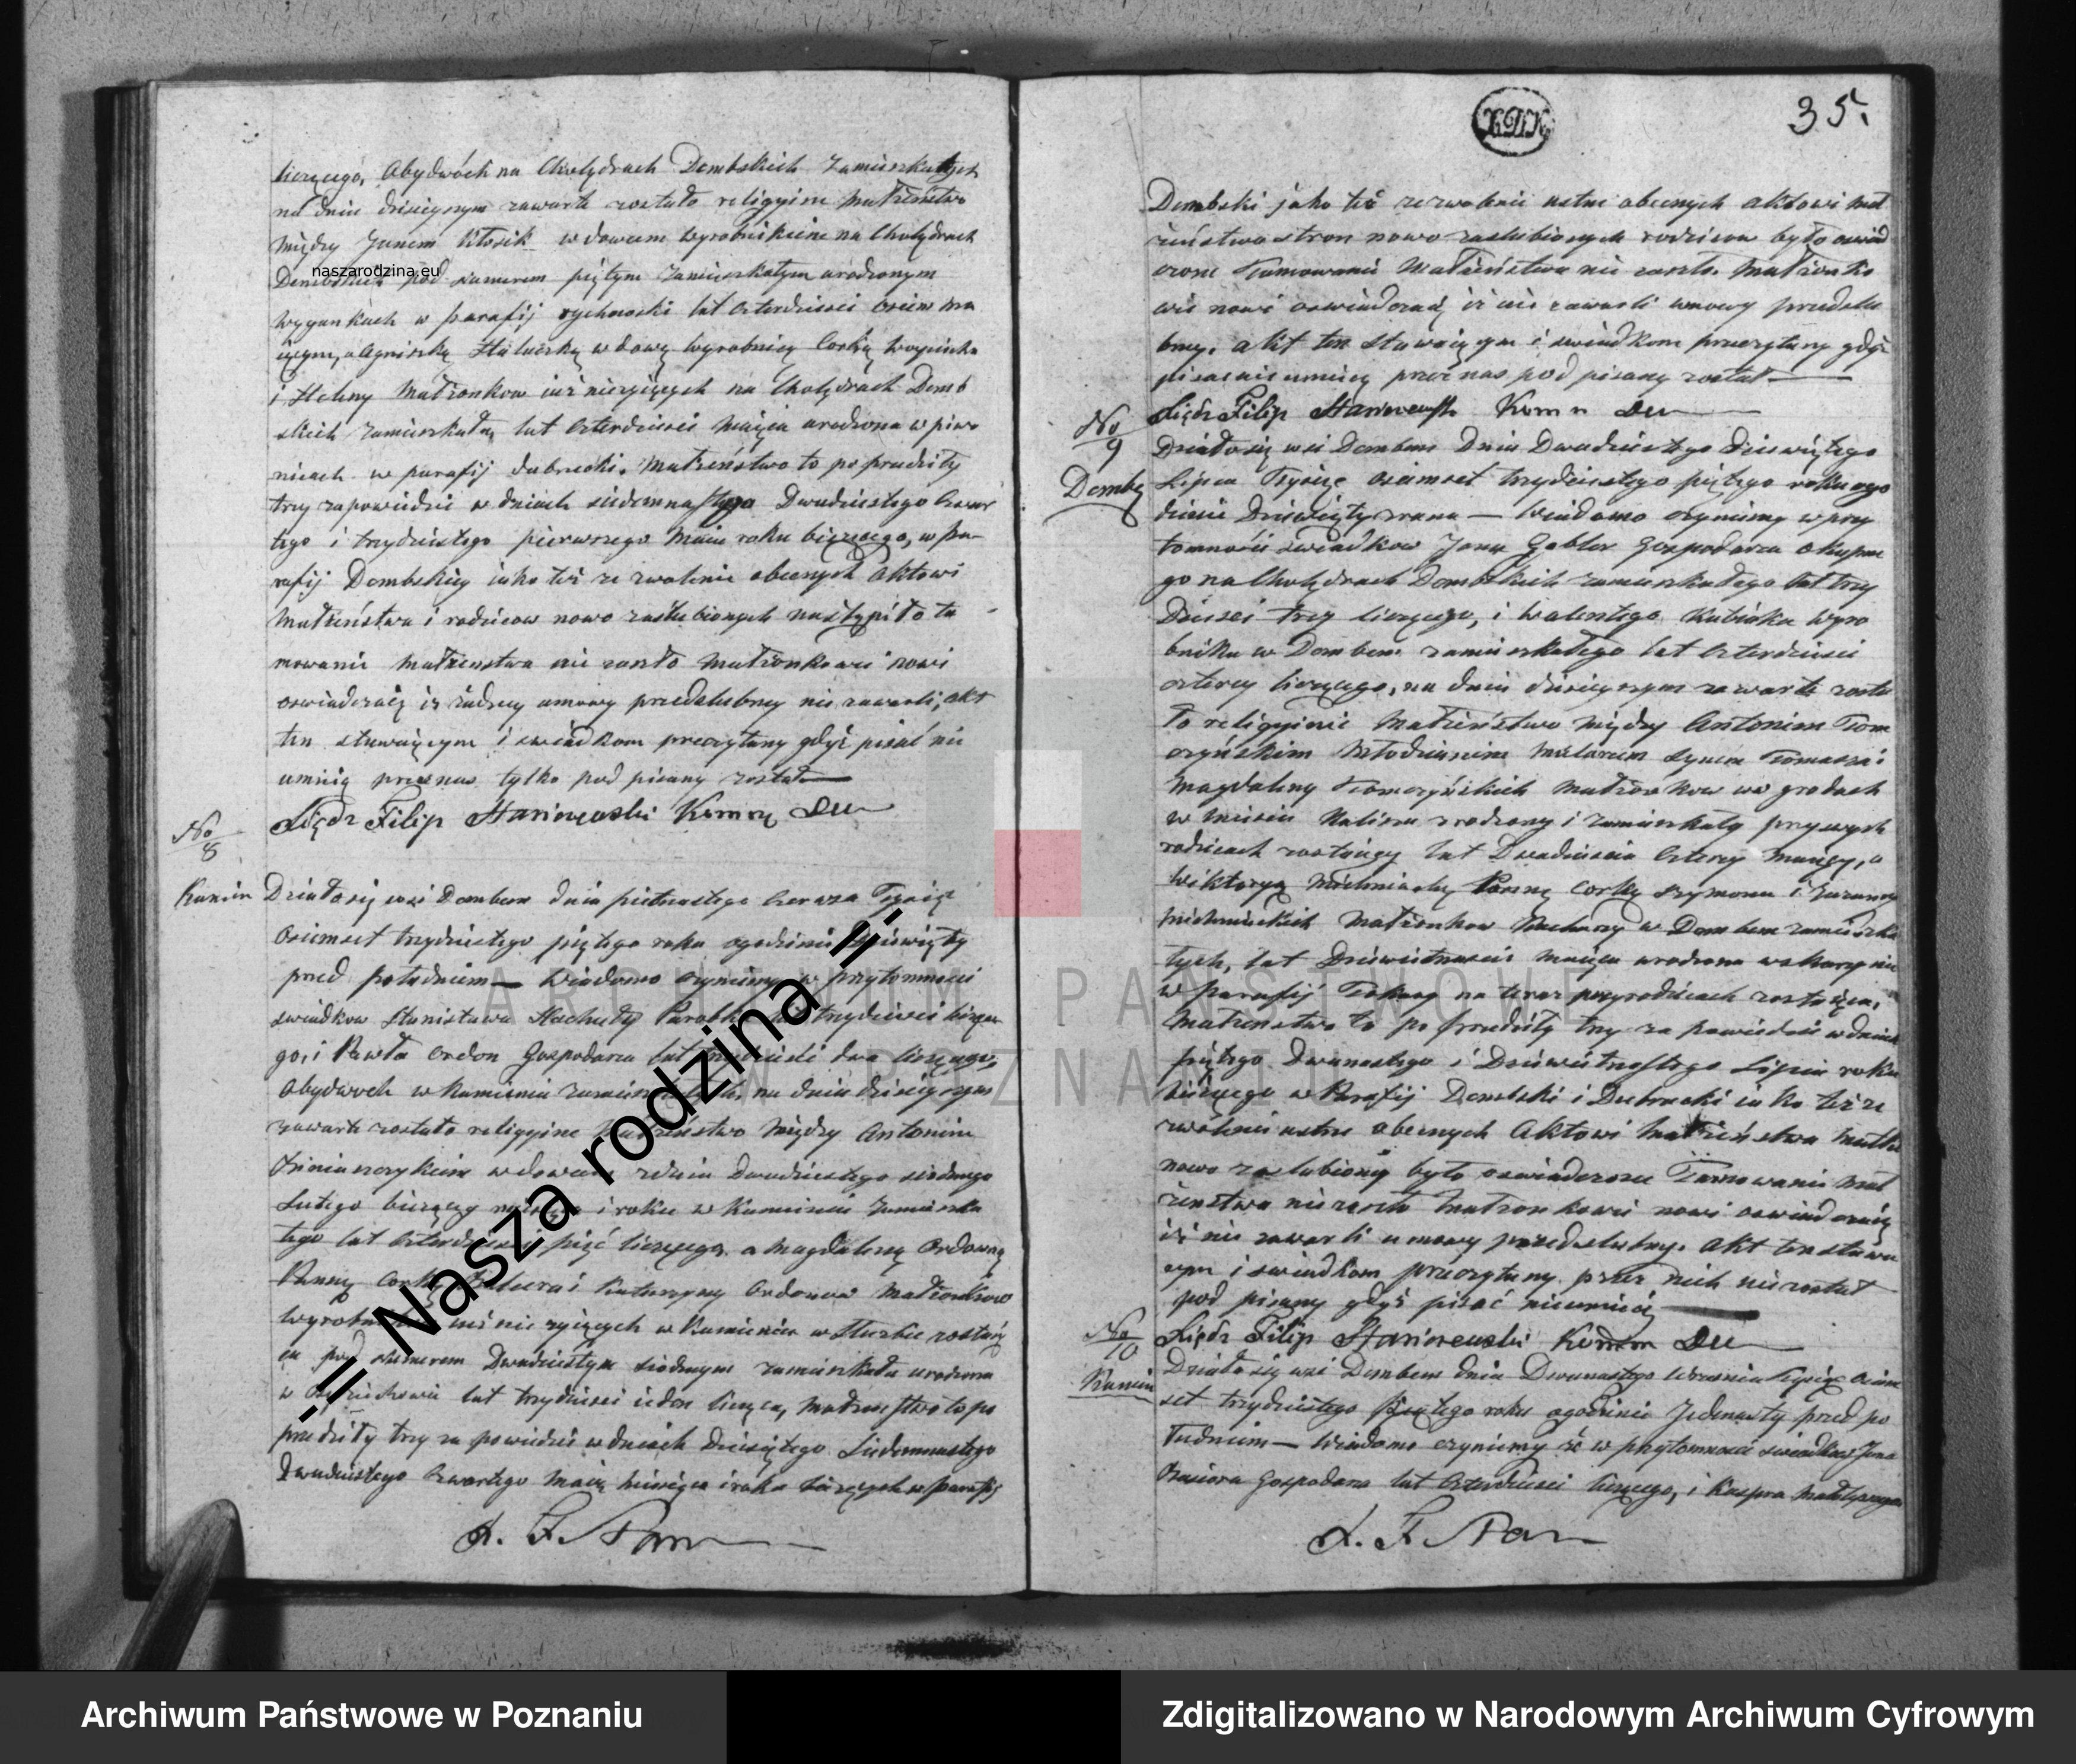 35.
liczącego, Obydwóch na Cholędrach Dembskich Zamieszkałych
na dniu dzisieyszym zawarte zostało religyine Małżeństwo
między Janem Kłosik wdowcem Wyrobnikiem na Cholędrach
Dembskich pod numerem piątym Zamieszkałym urodzonym
naszarodzina.eu
w parafij rychwalski lat Czterdzieści Osiem ma
iącym, a Agniszką wdową Wyrobnicą Corką Woyciecha
i Heleny Małżonkow iuż nieżyiących na Cholędrach Demb
skich Zamieszkałą, lat Czterdzieści Maiąca urodzona w piw
nicach w parafij dubrocki. Małżeństwo to poprzedziły
trzy zapowiedzi w dniach siedemnastego Dwudziestego Czwar
tego i trzydziestego pierwszego Maia roku bieżącego, w Pa-
rafij Dembskiey iako też ze zwolenie obecnych Aktowi
Małżeństwa i rodzicow nowo zaślubionych nastąpiło ta
mowanie Małżenstwa nie zaszło Małżonkowie nowi
oswiadczaią iż żadney umowy przedslubney nie zawarli, akt
ten stawaiącym i swiadkom przeczytany gdyż pisać nie
umieią przeznas tylko podpisany został
Xiądz Filip Staniszewski
No
8
Kamień
Działo się wsi Dembem dnia pietnastego Czerwca Tysiąc
Osiemset trzydziestego piątego roku ogodzinie dziewiąty
przed południem — Wiadomo czyniemy w przytomności
swiadkow Stanisława Stachuty Parobka lat trzydzieści liczące
go, i Pawła Ordon Gospodarza lat trzydzieści dwa liczącego,
Obydwoch w Kamieniu zamieszkałych, na dniu dzisieyszym
zawarte zostało religyine Małżeństwo między Antonim
wdowcem zdnia Dwudziestego siodmego
Lutego bieżący i roku w Kamieniu Zamieszka
tego lat Czterdzieści pięć liczącego, a Magdaleną Ordowną
Panną Corką i Katarzyny Ordonow Małżonkow
iuż nie żyiących w Kamieniu w Służbie zostaią
ca pod numerem Dwudziestym siodmym zamieszkała urodzona
w lat trzydzieści ieden licząca, Małżenstwo to po
przedziły trzy zapowiedzi w dniach Dziesiątego Siedemnastego
Dwudziestego Czwartego Maia Miesiąca i roku bieżących w parafij
X. F. Stan
Dembski jako też zezwolenie ustne obecnych aktowi Mał
żeństwa stron nowo zaslubionych rodzicow było oswiad
czone Tamowanie Małżeństwa nie zaszło. Małżonko
wie nowi oswiadczaią iż nie zawarli umowy przedslu
bney. Akt ten Stawaiącym i swiadkom przeczytany gdyż
pisac nie umieią przez nas podpisany został
Xiądz Filip Staniszewski
No
9
Dembe
Działo się wsi Dembem Dnia Dwudziestego dziewiątego
Lipca Tysiąc osiemset trzydziestego piątego roku ogo
dzinie Dziewiąty zrana — Wiadomo czyniemy w przy
tomności swiadkow Jana Gabler Gospodarza okupne
go na Cholędrach Dembskich zamieszkałego lat trzy
dzieści trzy liczącego, i Walentego Kubiaka Wyro
bnika w Dembem zamieszkałego lat Czterdzieści
cztery liczącego, na dniu dzisieyszym zawarte zosta
ło religyinie Małżeństwo między Antonim Tom
czyńskim Młodzianem Malarzem Synem Tomasza i
Magdaleny Tomczyńskich Małżonkow
w Mieście Kaliszu zrodzony i zamieszkały przyswych
rodzicach zostaiący lat Dwadzieścia Cztery Maiący, a
Wiktoryą Michniacką Panną Corką Szymona i Zuzanny
Michniackich Małżonkow w Dembem zamieszka
łych, lat Dziewiętnaście Maiąca urodzona
w Parafij Tokary na teraz przyrodzicach zostaiąca,
Małżenstwo to poprzedziły trzy zapowiedzi w dniach
piątego Dwunastego i Dziewiętnastego Lipca roku
bieżącego w Parafij Dembski i Dubrocki iako też ze
zwolenie ustne obecnych Aktowi Małżeństwa Matki
nowo zaslubiony było oswiadczone Tamowanie Mał
żenstwa nie zaszło Małżonkowie nowi oswiadczaią
iż nie zawarli umowy przedslubny. Akt ten stawa
cym i swiadkom przeczytany przez nich nie został
podpisany gdyż pisać nieumieią
Xiądz Filip Staniszewski
No
10
Kamień
Działo się wsi Dembem dnia Dwunastego Września Tysiąc Osiem
set trzydziestego piątego roku ogodzinie Jedenasty przed po
łudniem — Wiadomo czyniemy iż w przytomności swiadkow Jana
Gospodarza lat Czterdzieści liczącego, i Kaspra
X. F. Stan
-=| Nasza rodzina |=-
ARCHIWUM PAŃSTWOWE
W POZNANIU
Archiwum Państwowe w Poznaniu
Zdigitalizowano w Narodowym Archiwum Cyfrowym